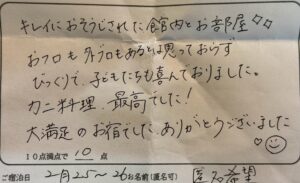 キレイにおそうじされた館内とお部屋
おフロも外ブロもあるとは思っておらず
びっくりで、子どもたちも喜んでおりました。
カニ料理、最高でした!
大満足のお宿でした。ありがとうございました
10点満点で 10 点
ご宿泊日 2月25~26 お名前(匿名可) 匿名希望